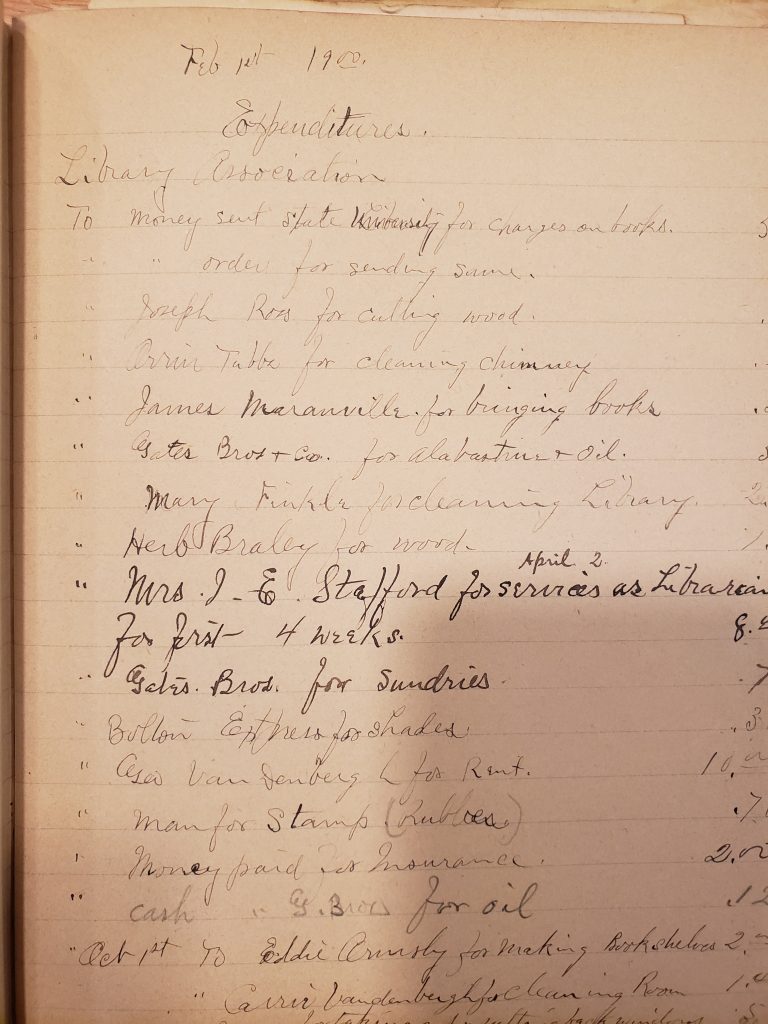 Feb 1st 1900.
Expenditures.
Library Association
To money sent state University for charges on books. 5
" " order for sending same.
" Joseph Ross for cutting wood.
" Orrin Tubbs for cleaning chimney
" James Maranville for bringing books
" Gates Bros + Co. for alabastine + oil.
" Mary Finkle for cleaning Library. 2.
" Herb Braley for wood. 1.
April 2
" Mrs. J. E. Stafford for services as Librarian
for first 4 weeks. 8.
" Gates. Bros. for sundries .7
Bolton Express for shades .3
" Geo VanDenbergh for Rent. 10.00
" man for Stamp (Rubber) .7
' Money paid for Insurance. 2.00
" cash " G. Bros for oil .12
" Oct 1st To Eddie Ormsby for making Bookshelves 2.
" Carrie Vandenbergh for cleaning Room 1.